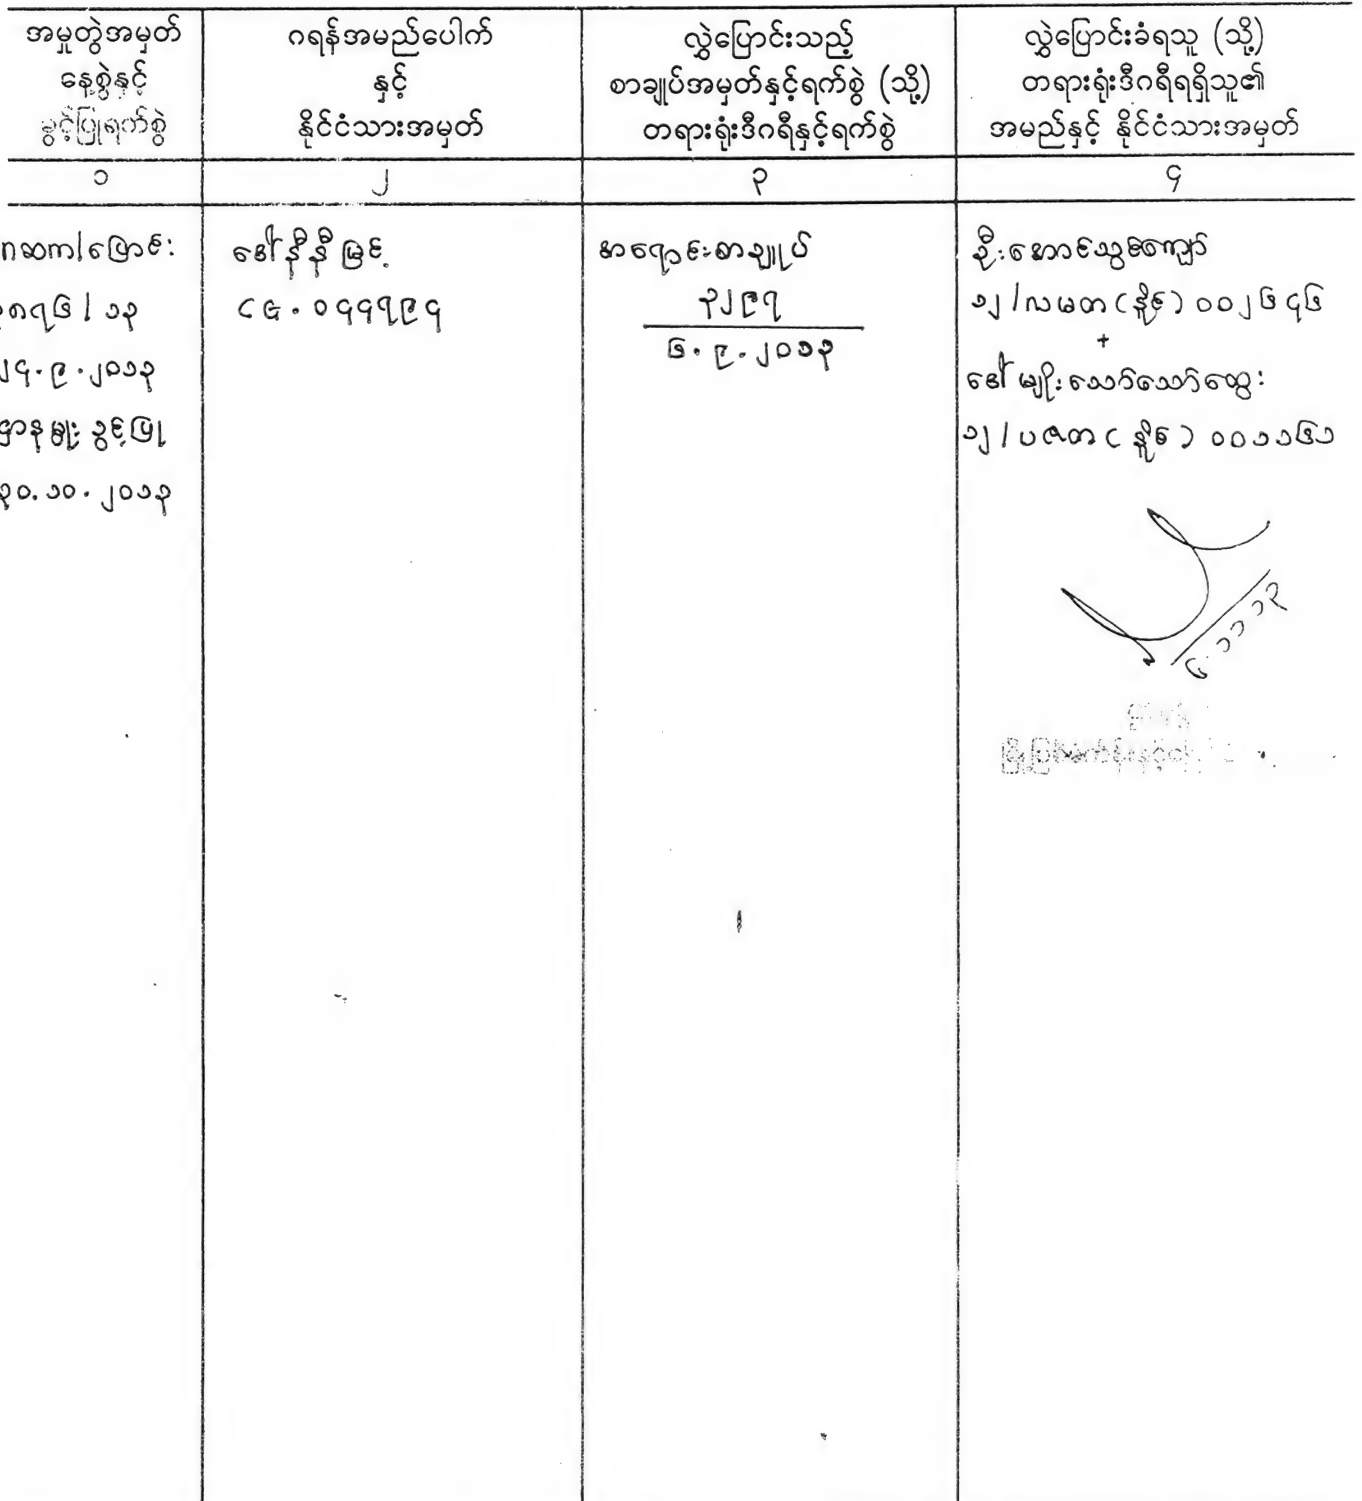 အမှုတွဲအမှတ်
နေ့စွဲနှင့်
ခွင့်ပြုရက်စွဲ
ဂရန်အမည်ပေါက်
နှင့်
နိုင်ငံသားအမှတ်
လွှဲပြောင်းသည့်
စာချုပ်အမှတ်နှင့်ရက်စွဲ (သို့)
တရားရုံးဒီဂရီနှင့်ရက်စွဲ
လွှဲပြောင်းခံရသူ (သို့)
တရားရုံးဒီဂရီရရှိသူ၏
အမည်နှင့် နိုင်ငံသားအမှတ်
၁
၂
၃
၄
ဂဆက/ပြောင်း
၈၇၆ / ၁၃
၂၄.၉.၂၀၁၃
ဌာနမှူး ခွင့်ပြု
၃၀.၁၀.၂၀၁၃
ဒေါ်နီနီမြင့်
၀၄၄၇၉၄
အရောင်းစာချုပ်
၃၂၉၇
၆.၉.၂၀၁၃
ဦးအောင်သွင်ကျော်
၁၂/လမတ(နိုင်)၀၀၂၆၄၆
+
ဒေါ်မျိုးသော်သော်ထွေး
၁၂/ပဇတ(နိုင်)၀၀၁၁၆၁
၆.၁၁.၁၃